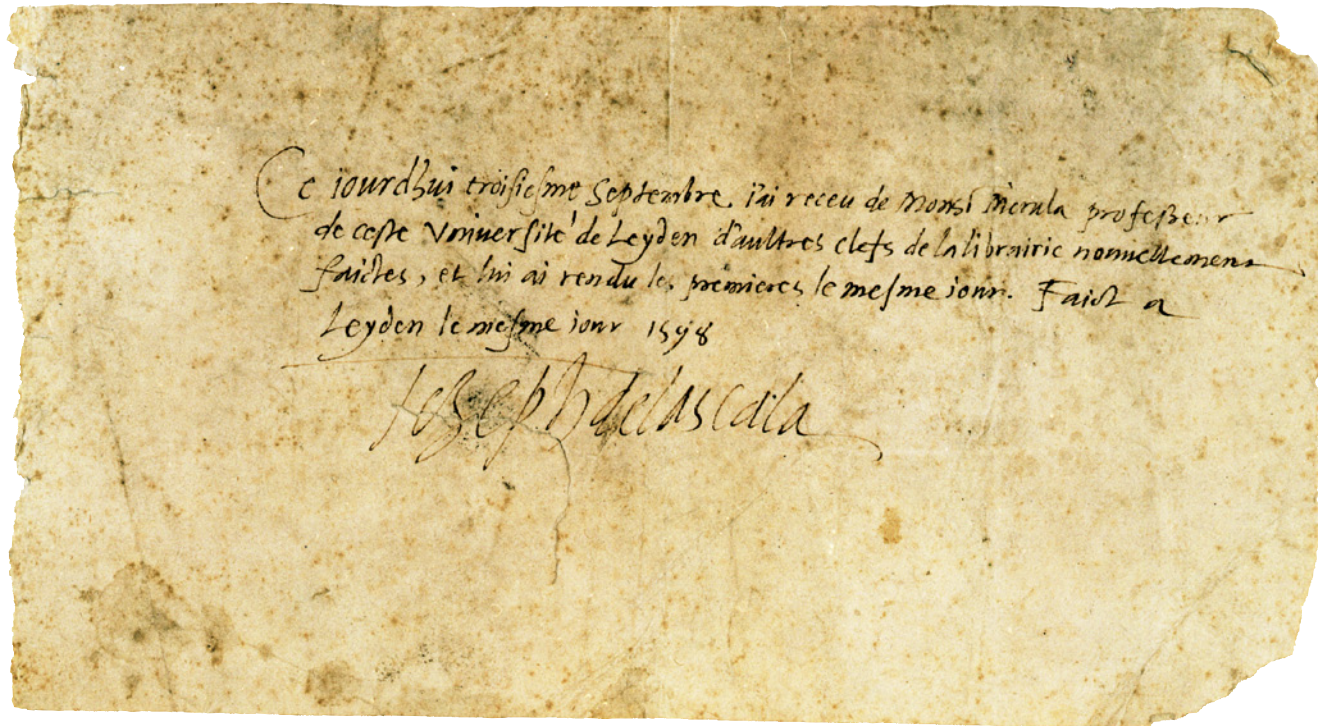 Ce iourdhui troisiesme Septembre i'ai receu de Monsr Merula professeur
de ceste Vniuersité de Leyden d'aultres clefs de la librairie nouuellement
faictes, et lui ai rendu les premieres le mesme iour. Faict a
Leyden le mesme iour 1598
Ioseph de la Scala